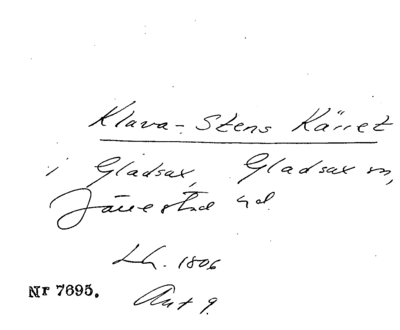 Klava-Stens Kärret
i Gladsax, Gladsax sn,
Järrestad hd.
Lh. 1806
Akt 9.
Nr 7695.